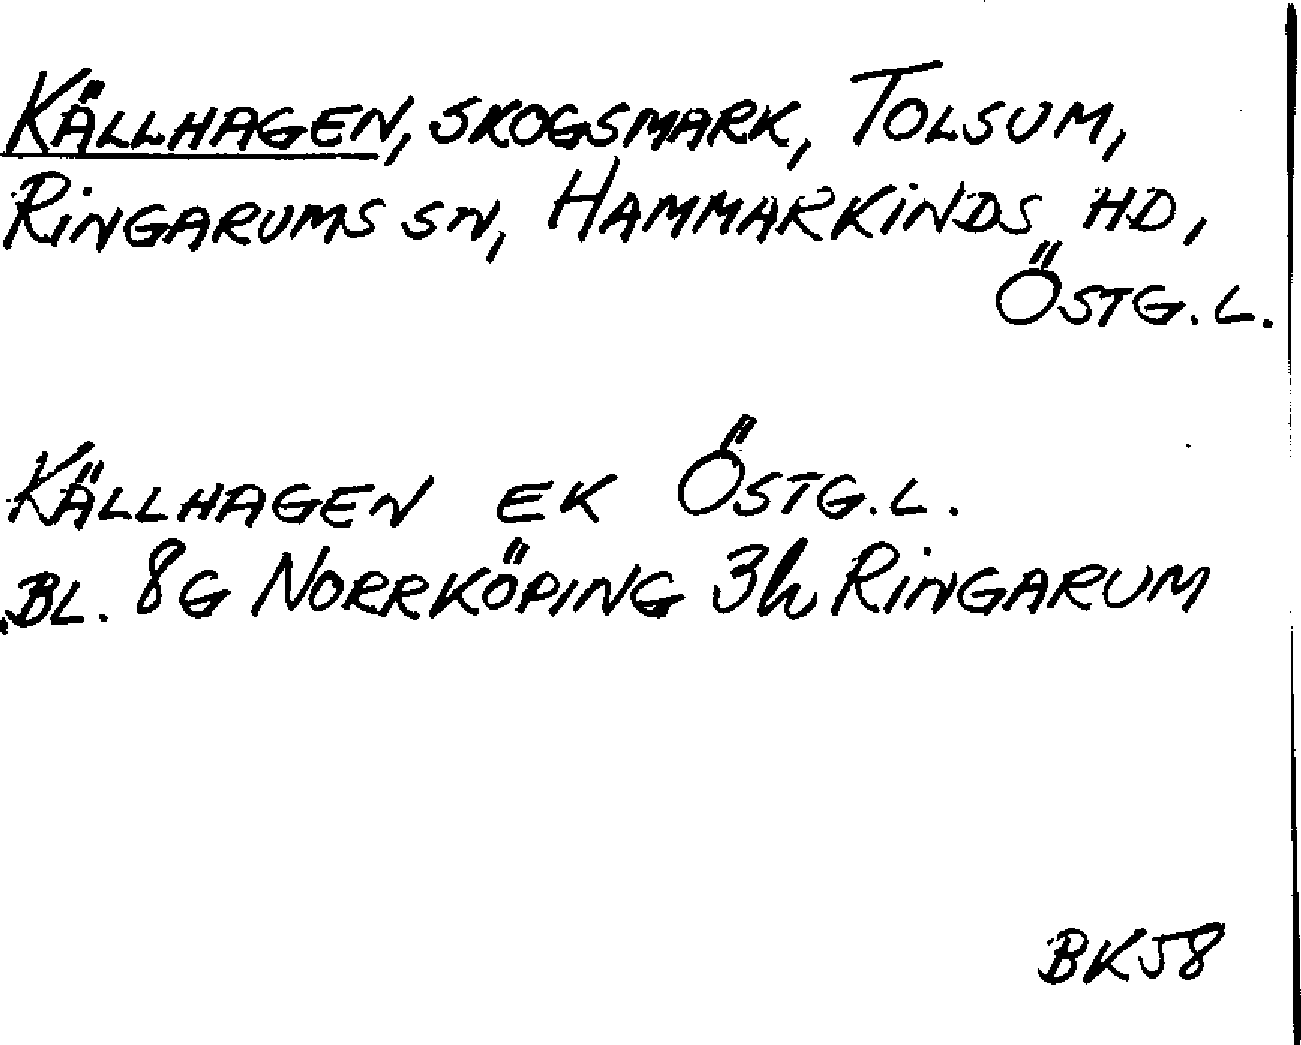 KÄLLHAGEN, SKOGSMARK, TOLSUM,
RINGARUMS SN, HAMMARKINDS HD,
ÖSTG. L.
KÄLLHAGEN EK ÖSTG. L.
BL. 8G NORRKÖPING 3h RINGARUM
BK58